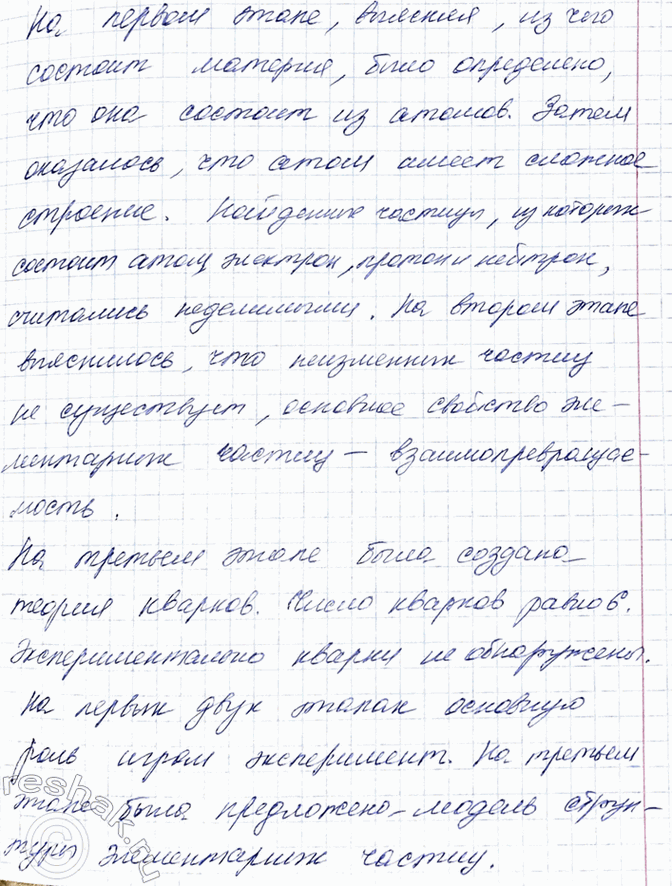 На первом этапе, выясняя, из чего
состоит материя, было определено,
что она состоит из атомов. Затем
оказалось, что атом имеет сложное
строение. Найденные частицы, из которых
состоит атом электрон, протон и нейтрон,
считались неделимыми. На втором этапе
выяснилось, что неизменных частиц
не существует, основное свойство эле-
ментарных частиц – взаимопревращае-
мость.
На третьем этапе была создана
теория кварков. Число кварков равно 6.
Экспериментально кварки не обнаружены.
На первых двух этапах основную
роль играл эксперимент. На третьем
этапе была предложена модель струк-
туры элементарных частиц.
reshak.ru
©